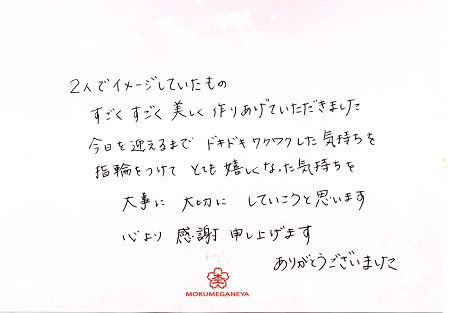 2人でイメージしていたもの
すごく すごく 美しく 作りあげていただきました
今日を迎えるまで ドキドキ ワクワクした 気持ちを
指輪をつけて とても 嬉しくなった 気持ちを
大事に 大切に していこうと思います
心より 感謝 申し上げます
ありがとうございました
MOKUMEGANEYA